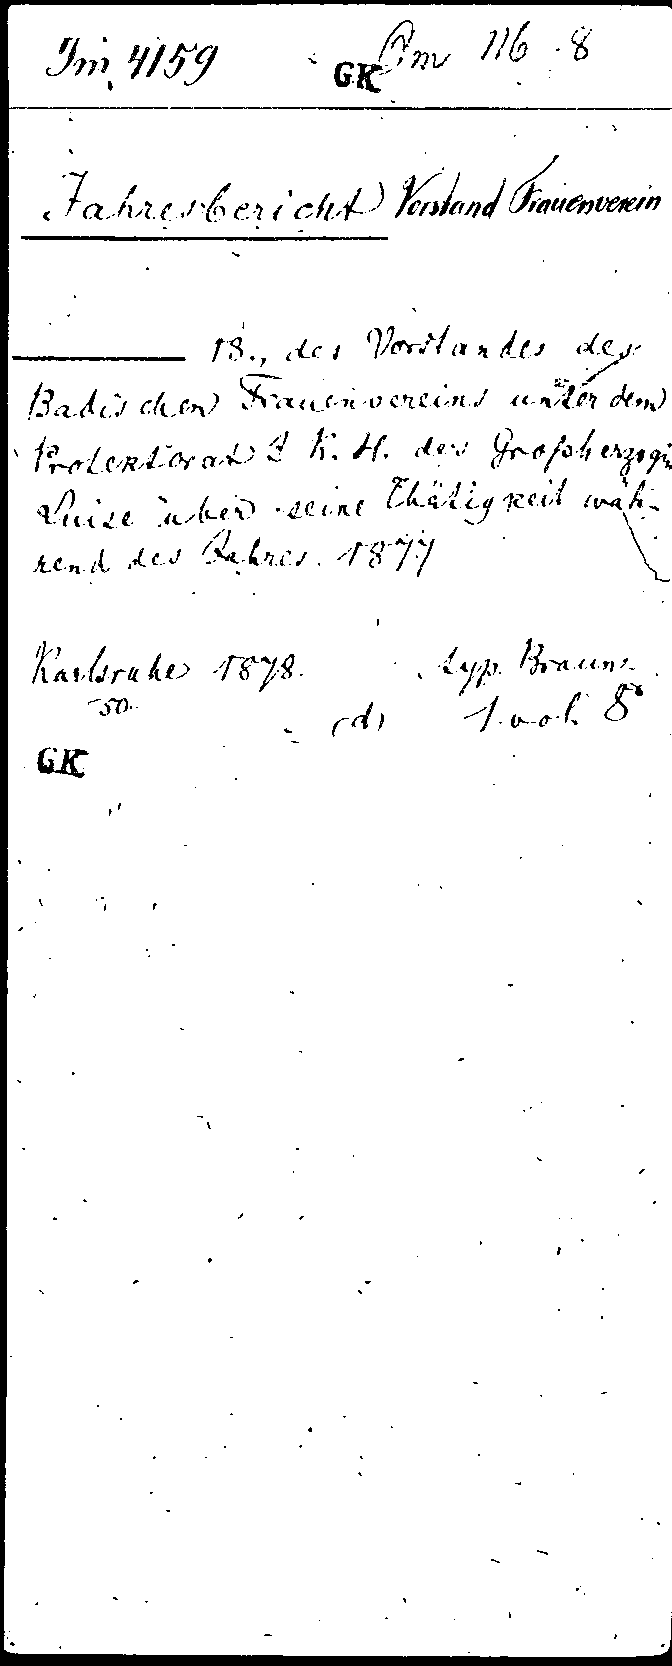 Im 4159 GK Om 116 8
Jahresbericht Vorstand Frauenverein
18., des Vorstandes des
Badischen Frauenvereins unter dem
Protektorat I. K. H. der Großherzogin
Luise über seine Thätigkeit wäh-
rend des Jahres 1877
Karlsruhe 1878. typ. Braun
50. (d) 1 vol. 8°
GK